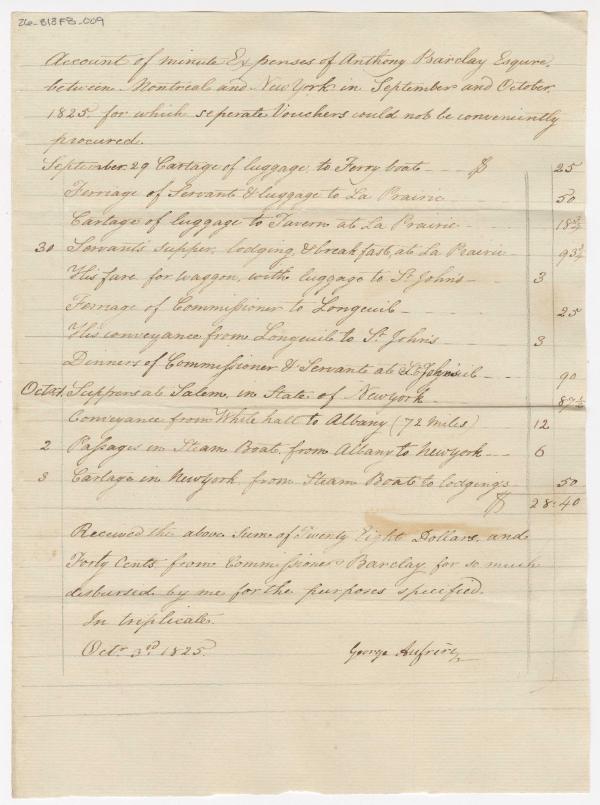 26-813FB-009
Account of minute Expenses of Anthony Barclay Esquire,
between Montreal and New York in September and October
1825. for which seperate Vouchers could not be conveniently
procured.
September 29 Cartage of luggage to Ferry boat $ 25
Ferriage of Servant & luggage to La Prairie 50
Cartage of luggage to Tavern at La Prairie 18¾
30 Servants supper, lodging, & breakfast, at La Prairie 93¾
His fare for waggon, with luggage to St Johns 3
Ferriage of Commissioner to Longeuil 25
His conveyance from Longeuil to St Johns 3
Dinners of Commissioner & Servant at 90
Octr 1. Suppers at Salem, in State of New York 87½
Conveyance from White hall to Albany (72 miles) 12
2 Passages in Steam Boat, from Albany to New york 6
3 Cartage in New york from Steam Boat to lodgings 50
$ 28.40
Received the above Sum of Twenty Eight Dollars, and
Forty Cents from Commissioner Barclay, for so much
disbursed by me for the purposes specified.
In triplicate.
Octr 3rd 1825. George Aufrere